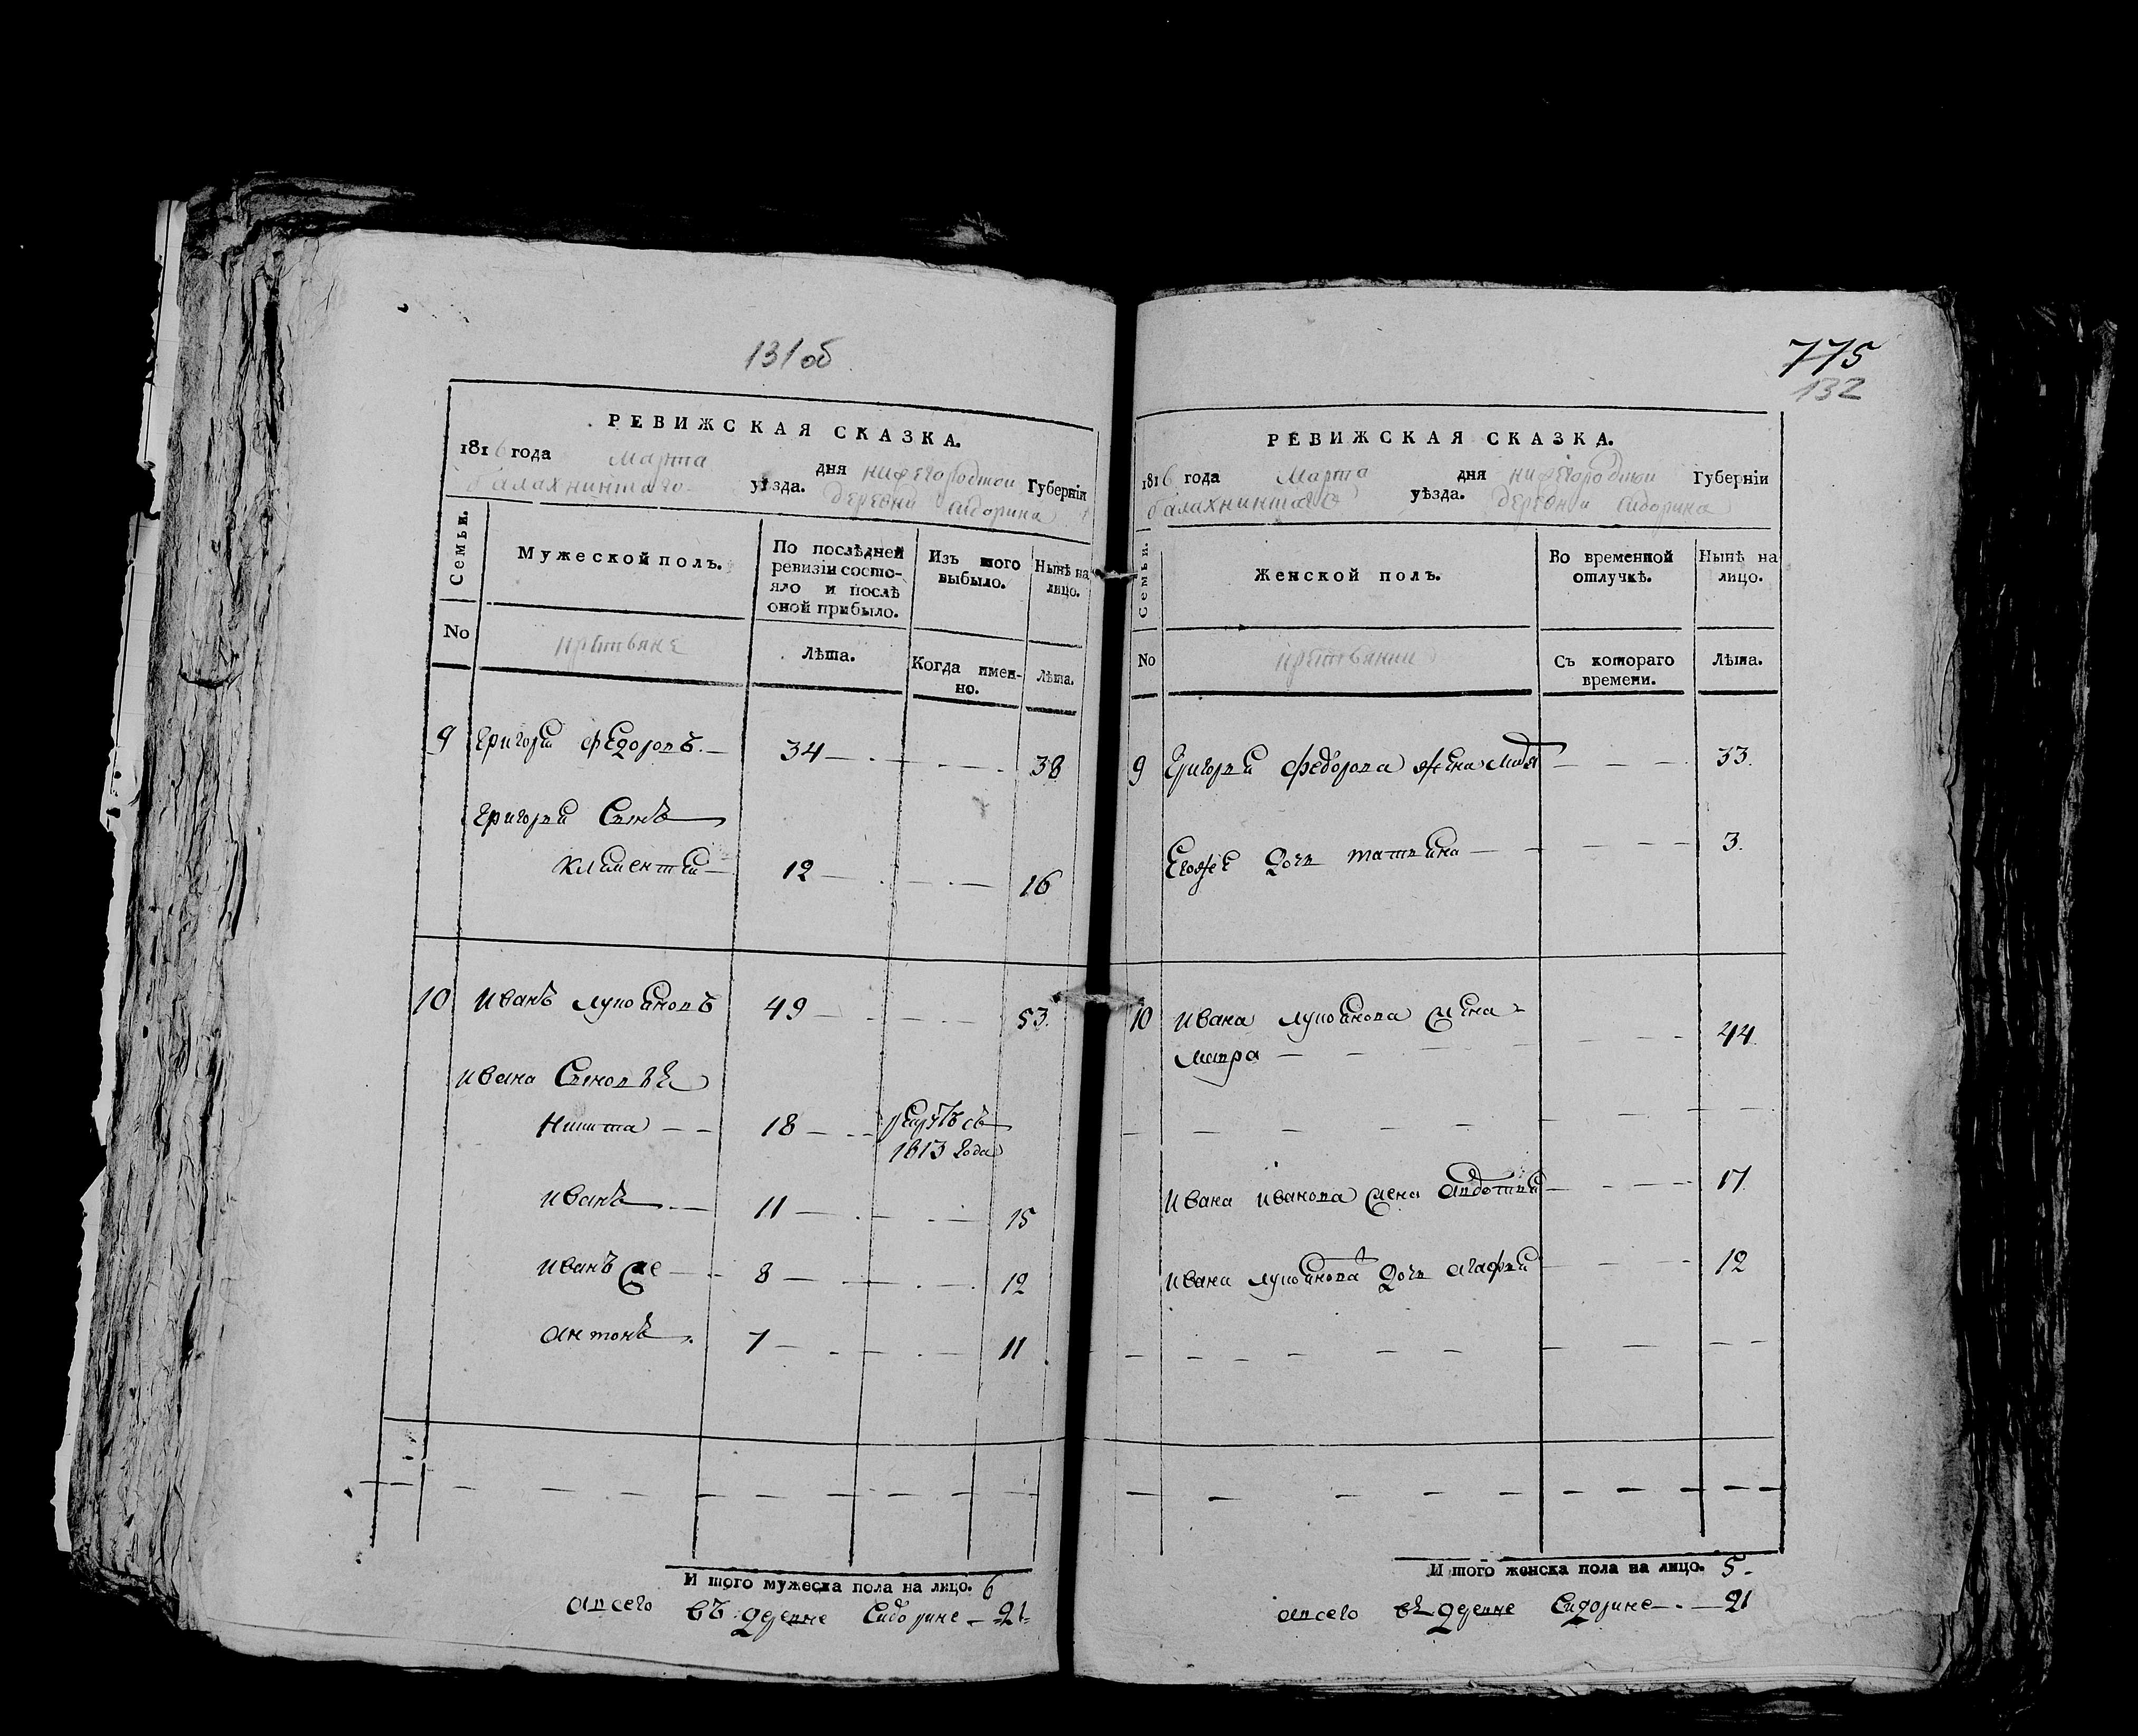 131 об
РЕВИЖСКАЯ СКАЗКА.
1816 года Марта дня нижегородской Губерніи
балахнинскаго уѣзда. деревни Сидорина
Семьи.
Мужеской полъ.
По послѣдней ревизіи состо-
яло и послѣ
оной прибыло.
Изъ того
выбыло.
Нынѣ на
лицо.
No
крестьяне
Лѣта.
Когда имен-
но.
Лѣта.
9 Григорей Федоровъ. 34 38
Григорья Сынъ
Климентей 12 16
10 Иванъ 49 53.
Ивана Сыновья
Никита 18 1813 года
Иванъ 11 15
Иванъ же 8 12
Антонъ 7 11
И того мужеска пола на лицо. 6
а всего въ деревне Сидорине 21
775
132
РЕВИЖСКАЯ СКАЗКА.
1816 года Марта дня нижегородской Губерніи
балахнинскаго уѣзда. деревни Сидорина
Семьи.
Женской полъ.
Во временной
отлучкѣ.
Нынѣ на
лицо.
No
Съ котораго
времени.
Лѣта.
9 Григорья Федорова жена 33.
Ево же дочь 3.
10 Ивана жена
Мавра 44.
Ивана Иванова жена Авдотья 17.
Ивана дочь Агафья 12
И того женска пола на лицо. 5.
а всего въ деревне Сидорине 21